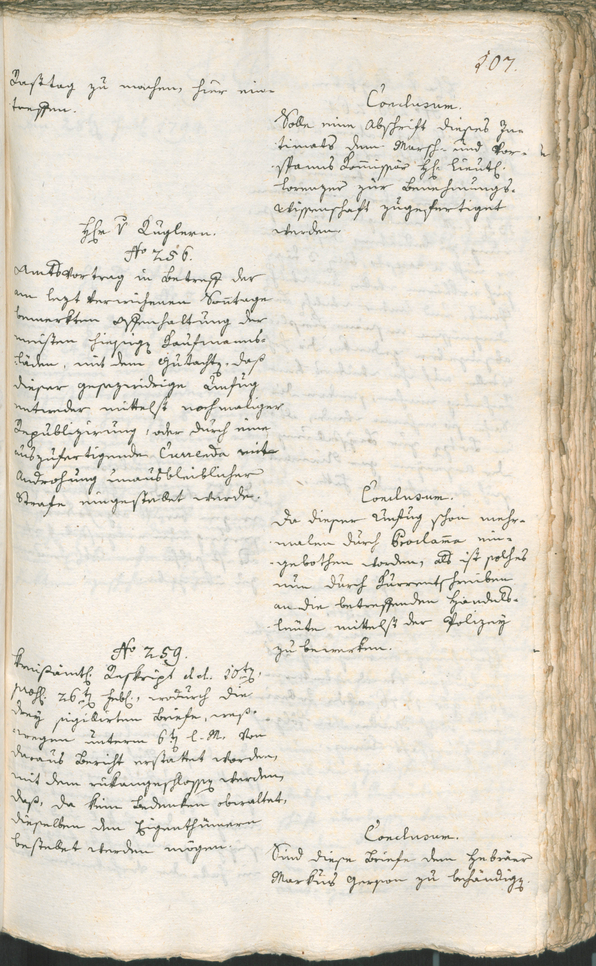 107.
Rasttag zu machen, hier ein-
treffen.
Conclusum.
Solle eine Abschrift dieses In-
timats dem Marsch- und Vor-
spanns Kommissär H. Lieut.
Lorenzer zur Benehmungs-
wissenschaft zugefertiget
werden.
Hr. v Kuglern.
No 256.
Amtsvortrag in Betreff der
am lezt verwichenen Sontage
bemerkten Offenhaltung der
meisten hiesigen Kaufmanns-
läden, mit dem Gutachten, daß
dieser gesezwidrige Unfug
entweder mittelst nochmaliger
Republizirung, oder durch eine
auszufertigende Currenda mit
Androhung unausbleiblicher
Strafe eingestellet werde.
Conclusum.
Da dieser Unfug schon mehr-
malen durch Proclama ein-
gebothen worden, als ist solches
nun durch Kurrentschreiben
an die betreffenden Handels-
leute mittelst der Polizey
zu bewerken.
No 259.
Kreisämtl. Reskript dd. 10ten,
26ten, wodurch die
drey sigilirten Briefe, wes-
wegen unterm 6ten l. M. von
daraus Bericht erstattet worden,
mit dem rükangeschlossen werden,
daß, da kein Bedenken obwaltet,
dieselben den Eigenthümern
bestellet werden mögen.
Conclusum.
Sind diese Briefe dem Hebräer
Markus Gerson zu behändigen.